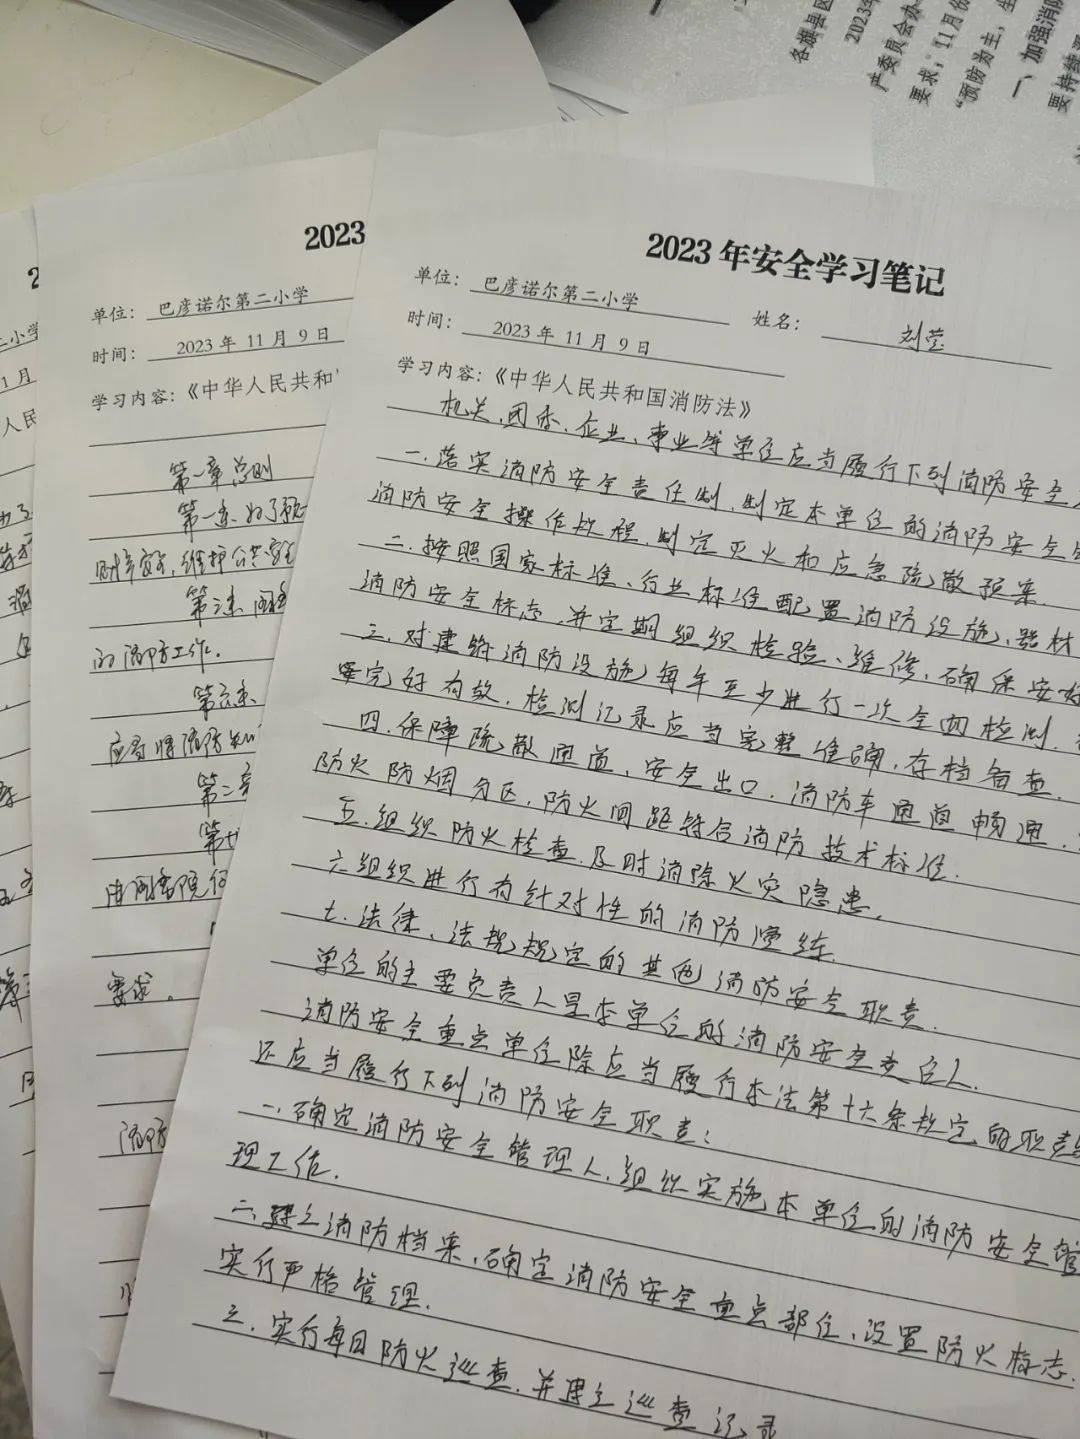 各旗县区
2023年
产委员会办
要求，11月份
“预防为主，生
一、加强消防
要持续
2023
单位：巴彦诺尔第二小学
时间：2023 年 11 月 9 日
学习内容：《中华人民共和
第一章总则
第一条 为了预
财产安全，维护公共安全
第二条
的消防工作．
第六条
应当将消防知
第二章
要求．
消防
2023 年安全学习笔记
单位：巴彦诺尔第二小学 姓名：刘莹
时间：2023 年 11 月 9 日
学习内容：《中华人民共和国消防法》
机关、团体、企业、事业等单位应当履行下列消防安全
一．落实消防安全责任制，制定本单位的消防安全
消防安全操作规程，制定灭火和应急疏散预案．
二．按照国家标准、行业标准配置消防设施、器材
消防安全标志，并定期组织检验、维修，确保完好
三．对建筑消防设施每年至少进行一次全面检测，
完好有效，检测记录应当完整准确，存档备查．
四．保障疏散通道、安全出口．消防车通道畅通，
防火防烟分区，防火间距符合消防技术标准．
五．组织防火检查，及时消除火灾隐患，
六．组织进行有针对性的消防演练．
七．法律、法规规定的其他消防安全职责．
单位的主要负责人是本单位的消防安全责任人．
消防安全重点单位除应当履行本法第十六条规定的职责
还应当履行下列消防安全职责：
一．确定消防安全管理人，组织实施本单位的消防安全管
理工作．
二．建立消防档案，确定消防安全重点部位、设置防火标志．
实行严格管理．
三．实行每日防火巡查，并建立巡查记录